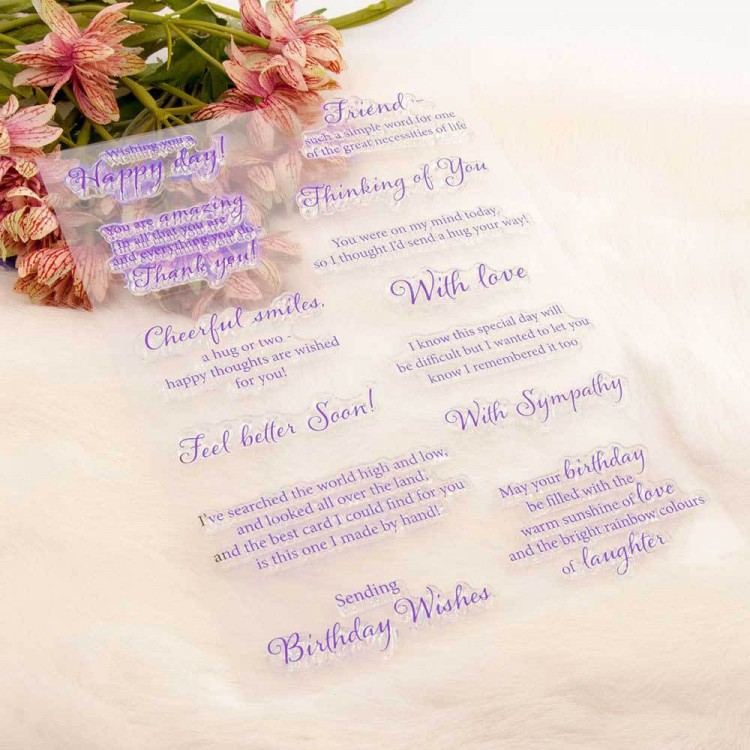 Wishing you a
Happy day!
You are amazing
in all that you are
and everything you do
Thank you!
Cheerful smiles,
a hug or two -
happy thoughts are wished
for you!
Feel better Soon!
I've searched the world high and low,
and looked all over the land;
and the best card I could find for you
is this one I made by hand!
Sending
Birthday Wishes
Friend -
such a simple word for one
of the great necessities of life
Thinking of You
You were on my mind today,
so I thought I'd send a hug your way!
With love
I know this special day will
be difficult but I wanted to let you
know I remembered it too
With Sympathy
May your birthday
be filled with the
warm sunshine of love
and the bright rainbow colours
of laughter